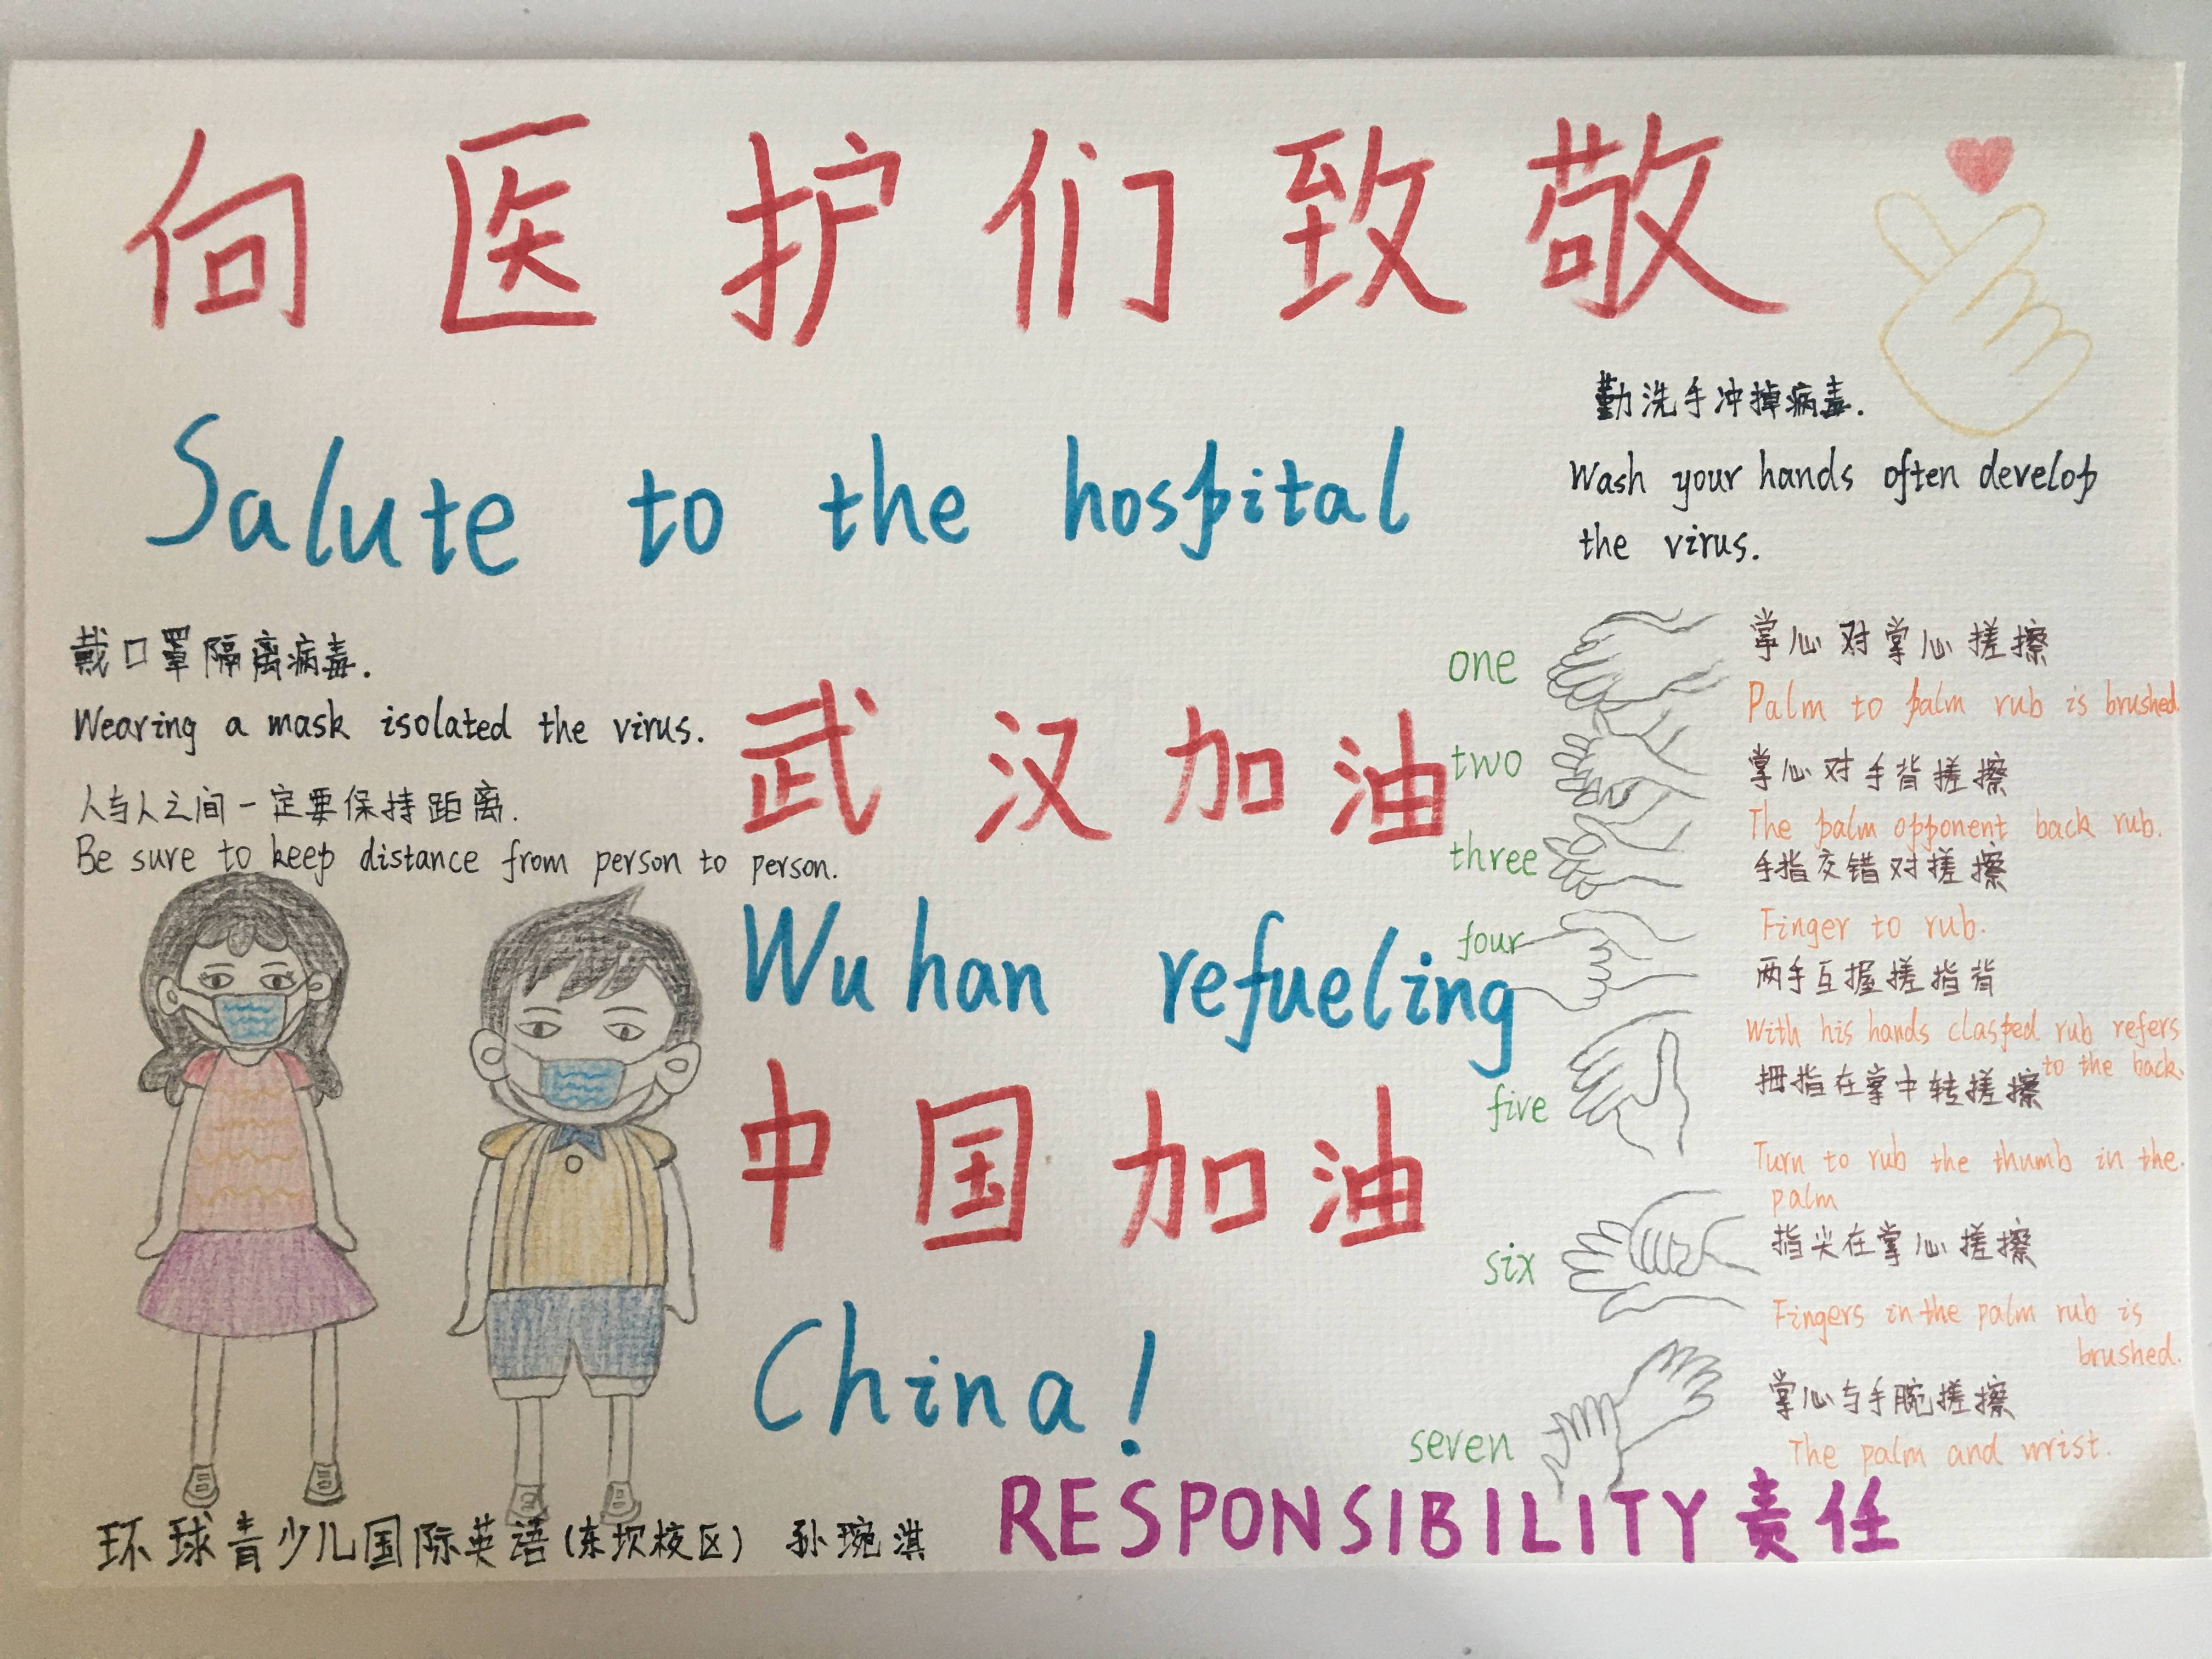 向医护们致敬
Salute to the hospital
勤洗手冲掉病毒.
Wash your hands often develop
the virus.
戴口罩隔离病毒.
Wearing a mask isolated the virus.
人与人之间一定要保持距离.
Be sure to keep distance from person to person.
武汉加油
Wuhan refueling
中国加油
China!
one
掌心对掌心搓擦
Palm to palm rub is brushed.
two
掌心对手背搓擦
The palm opponent back rub.
three
手指交错对搓擦
Finger to rub.
four
两手互握搓指背
With his hands clasped rub refers
to the back.
five
拇指在掌中转搓擦
Turn to rub the thumb in the.
palm
six
指尖在掌心搓擦
Fingers in the palm rub is
brushed.
seven
掌心与手腕搓擦
The palm and wrist.
RESPONSIBILITY 责任
环球青少儿国际英语(东坎校区) 孙琬淇